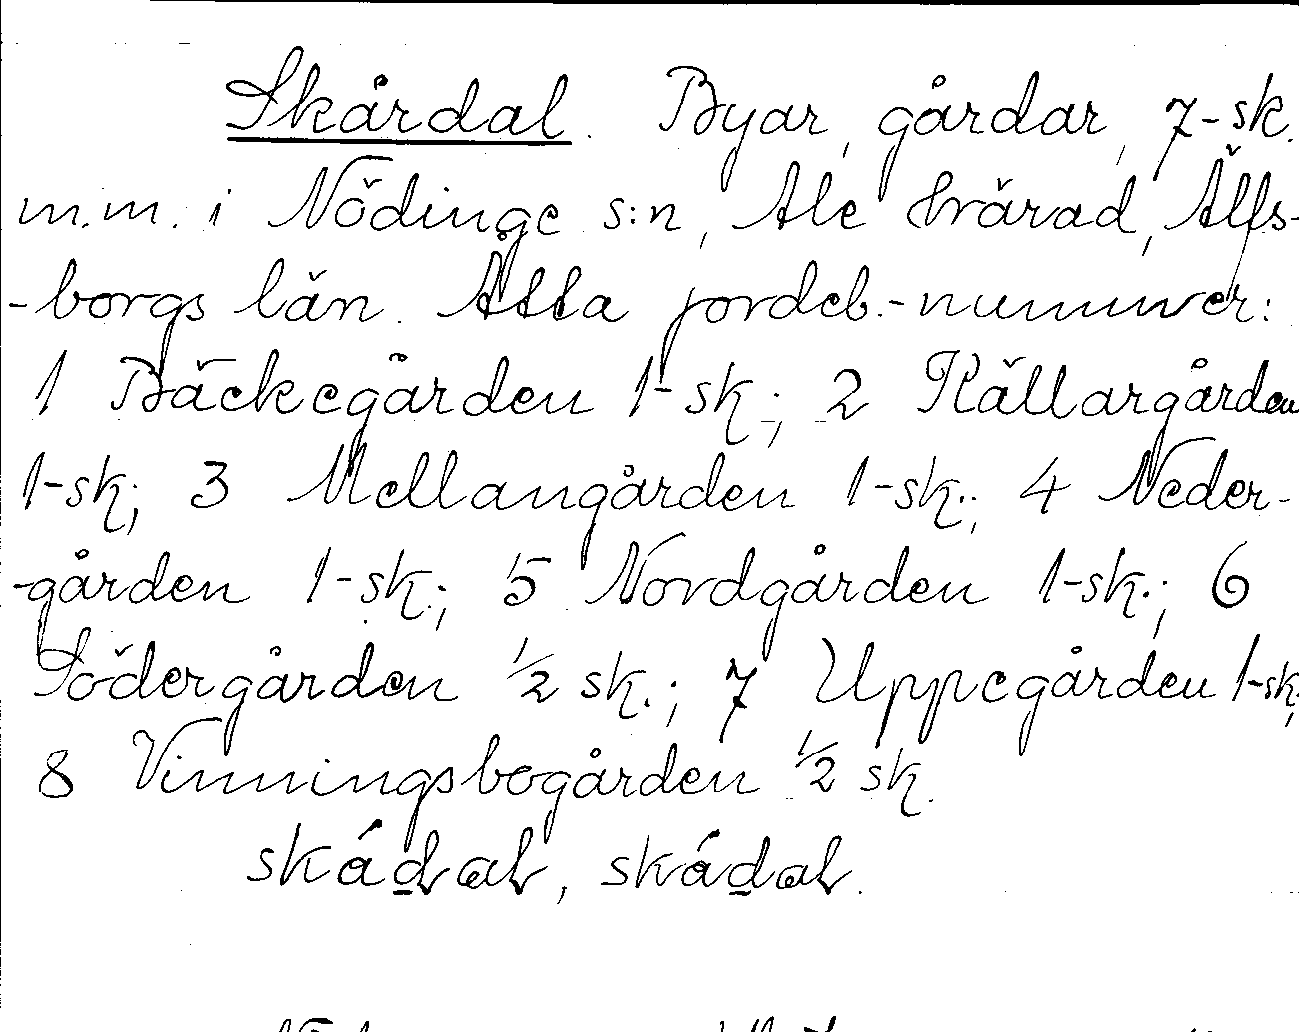 Skårdal. Byar, gårdar, 7-sk.
m.m. i Nödinge s:n, Ale härad, Älfs-
-borgs län. Åtta jordeb.-nummer:
1 Bäckegården 1-sk.; 2 Källargården
1-sk; 3 Mellangården 1-sk.; 4 Neder-
-gården 1-sk.; 5 Nordgården 1-sk.; 6
Södergården ½ sk.; 7 Uppegården 1-sk;
8 Vinningsbogården ½ sk.